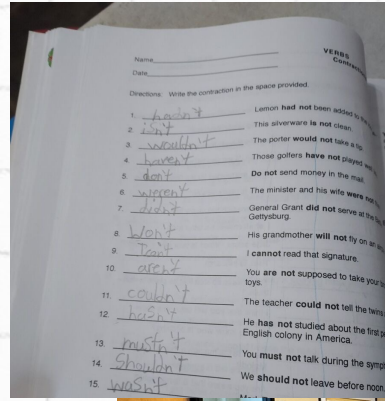 VERBS
Name
Date
Directions: Write the contraction in the space provided.
1. hadn't Lemon had not been added to the
2. isn't This silverware is not clean.
3. wouldn't The porter would not take a tip.
4. haven't Those golfers have not played
5. don't Do not send money in the mail.
6. weren't The minister and his wife were not
7. didn't General Grant did not serve at the
Gettysburg.
8. Won't His grandmother will not fly on an
9. I cannot read that signature.
10. aren't You are not supposed to take your
toys.
11. couldn't The teacher could not tell the twins
12. hasn't He has not studied about the first
English colony in America.
13. mustn't You must not talk during the symph
14. Shouldn't We should not leave before noon.
15. wasn't